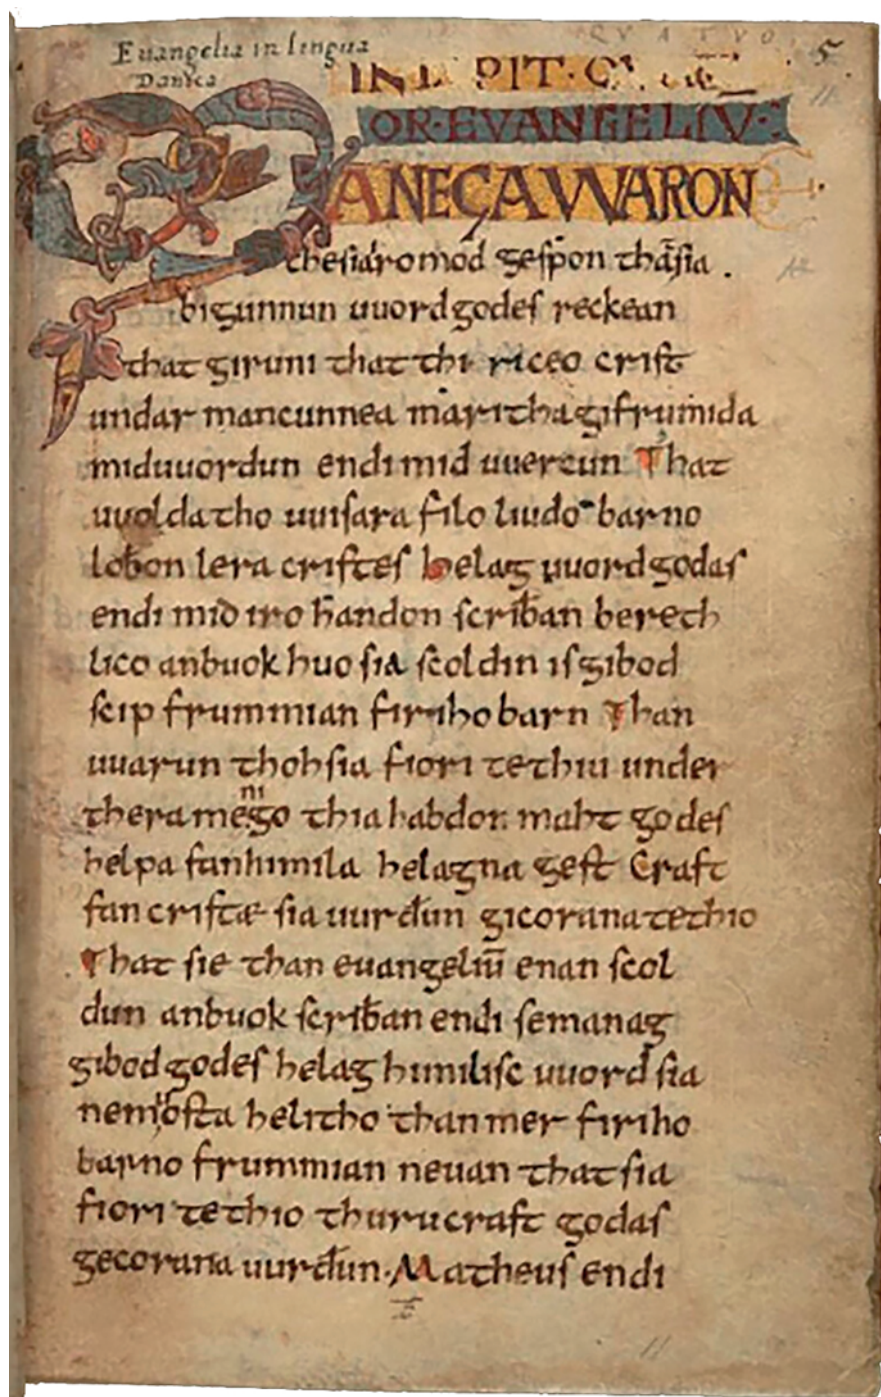 Euangelia in lingua
Danica
QVATVO
5
11
INCIPIT·QVAT
OR·EVANGELIV·
MANEGA WARON
the sia iro mod gespon thā sia .
bigunnun uuord godes reckean
that giruni that thi riceo crist
undar mancunnea maritha gifrumida
mid uuordun endi mid uuercun That
uuolda tho uuisara filo liudo barno
loƀon lera cristes helag uuord godas
endi mid iro handon scriƀan bereth
lico an buok huo sia scoldin is gibod
scip frummian firiho barn Than
uuarun thoh sia fiori te thiu under
thera menigo thia habdon maht godes
helpa fan himila helagna gest Craft
fan cristæ sia uurđun gicorana te thio
That sie than euangeliū enan scol
dun an buok scriƀan endi so manag
gibod godes helag himilisc uuord sia
ne mosta helitho than mer firiho
barno frummian neuan that sia
fiori te thio thuru craft godas
gecorana uurđun· Matheus endi
11